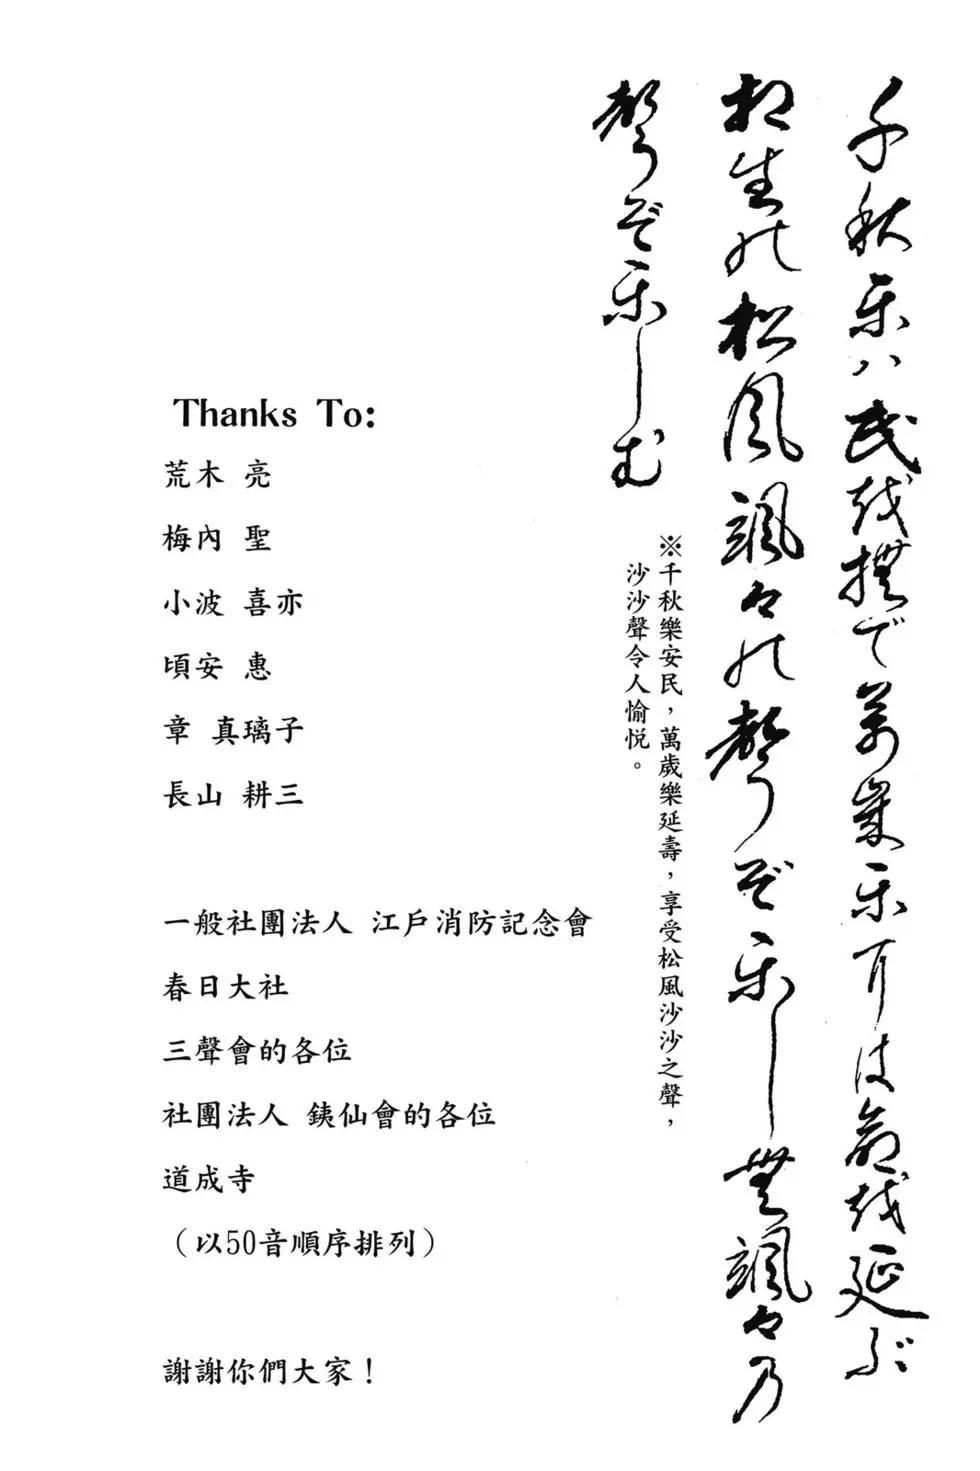 千秋楽ハ民を撫で萬歳楽には命を延ぶ
相生の松風颯々の聲ぞ楽しむ颯々乃
聲ぞ楽しむ
※千秋樂安民，萬歲樂延壽，享受松風沙沙之聲，
沙沙聲令人愉悅。
Thanks To:
荒木 亮
梅內 聖
小波 喜亦
頃安 惠
章 真璃子
長山 耕三
一般社團法人 江戶消防記念會
春日大社
三聲會的各位
社團法人 銕仙會的各位
道成寺
（以50音順序排列）
謝謝你們大家！